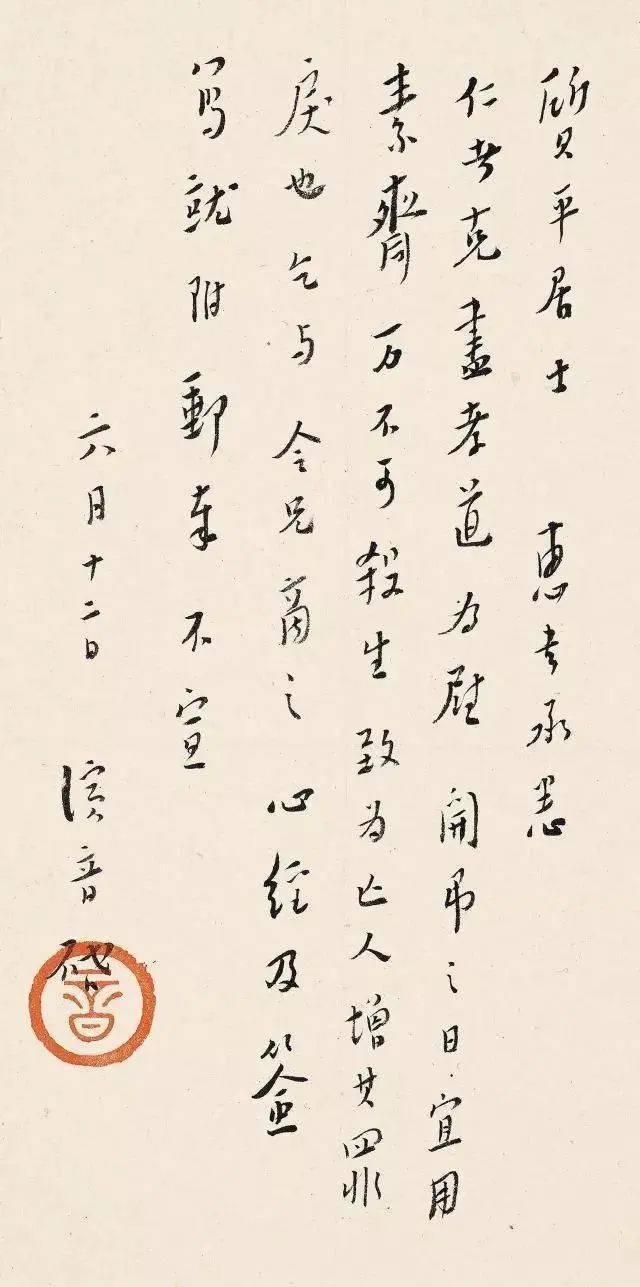 質平居士 惠書承悉
仁者克盡孝道为慰 開弔之日宜用
素齋万不可殺生致为亡人增其罪
戾也乞与令兄商之心經及簽
寫就附郵奉不宣
六月十二日 演音啓
音